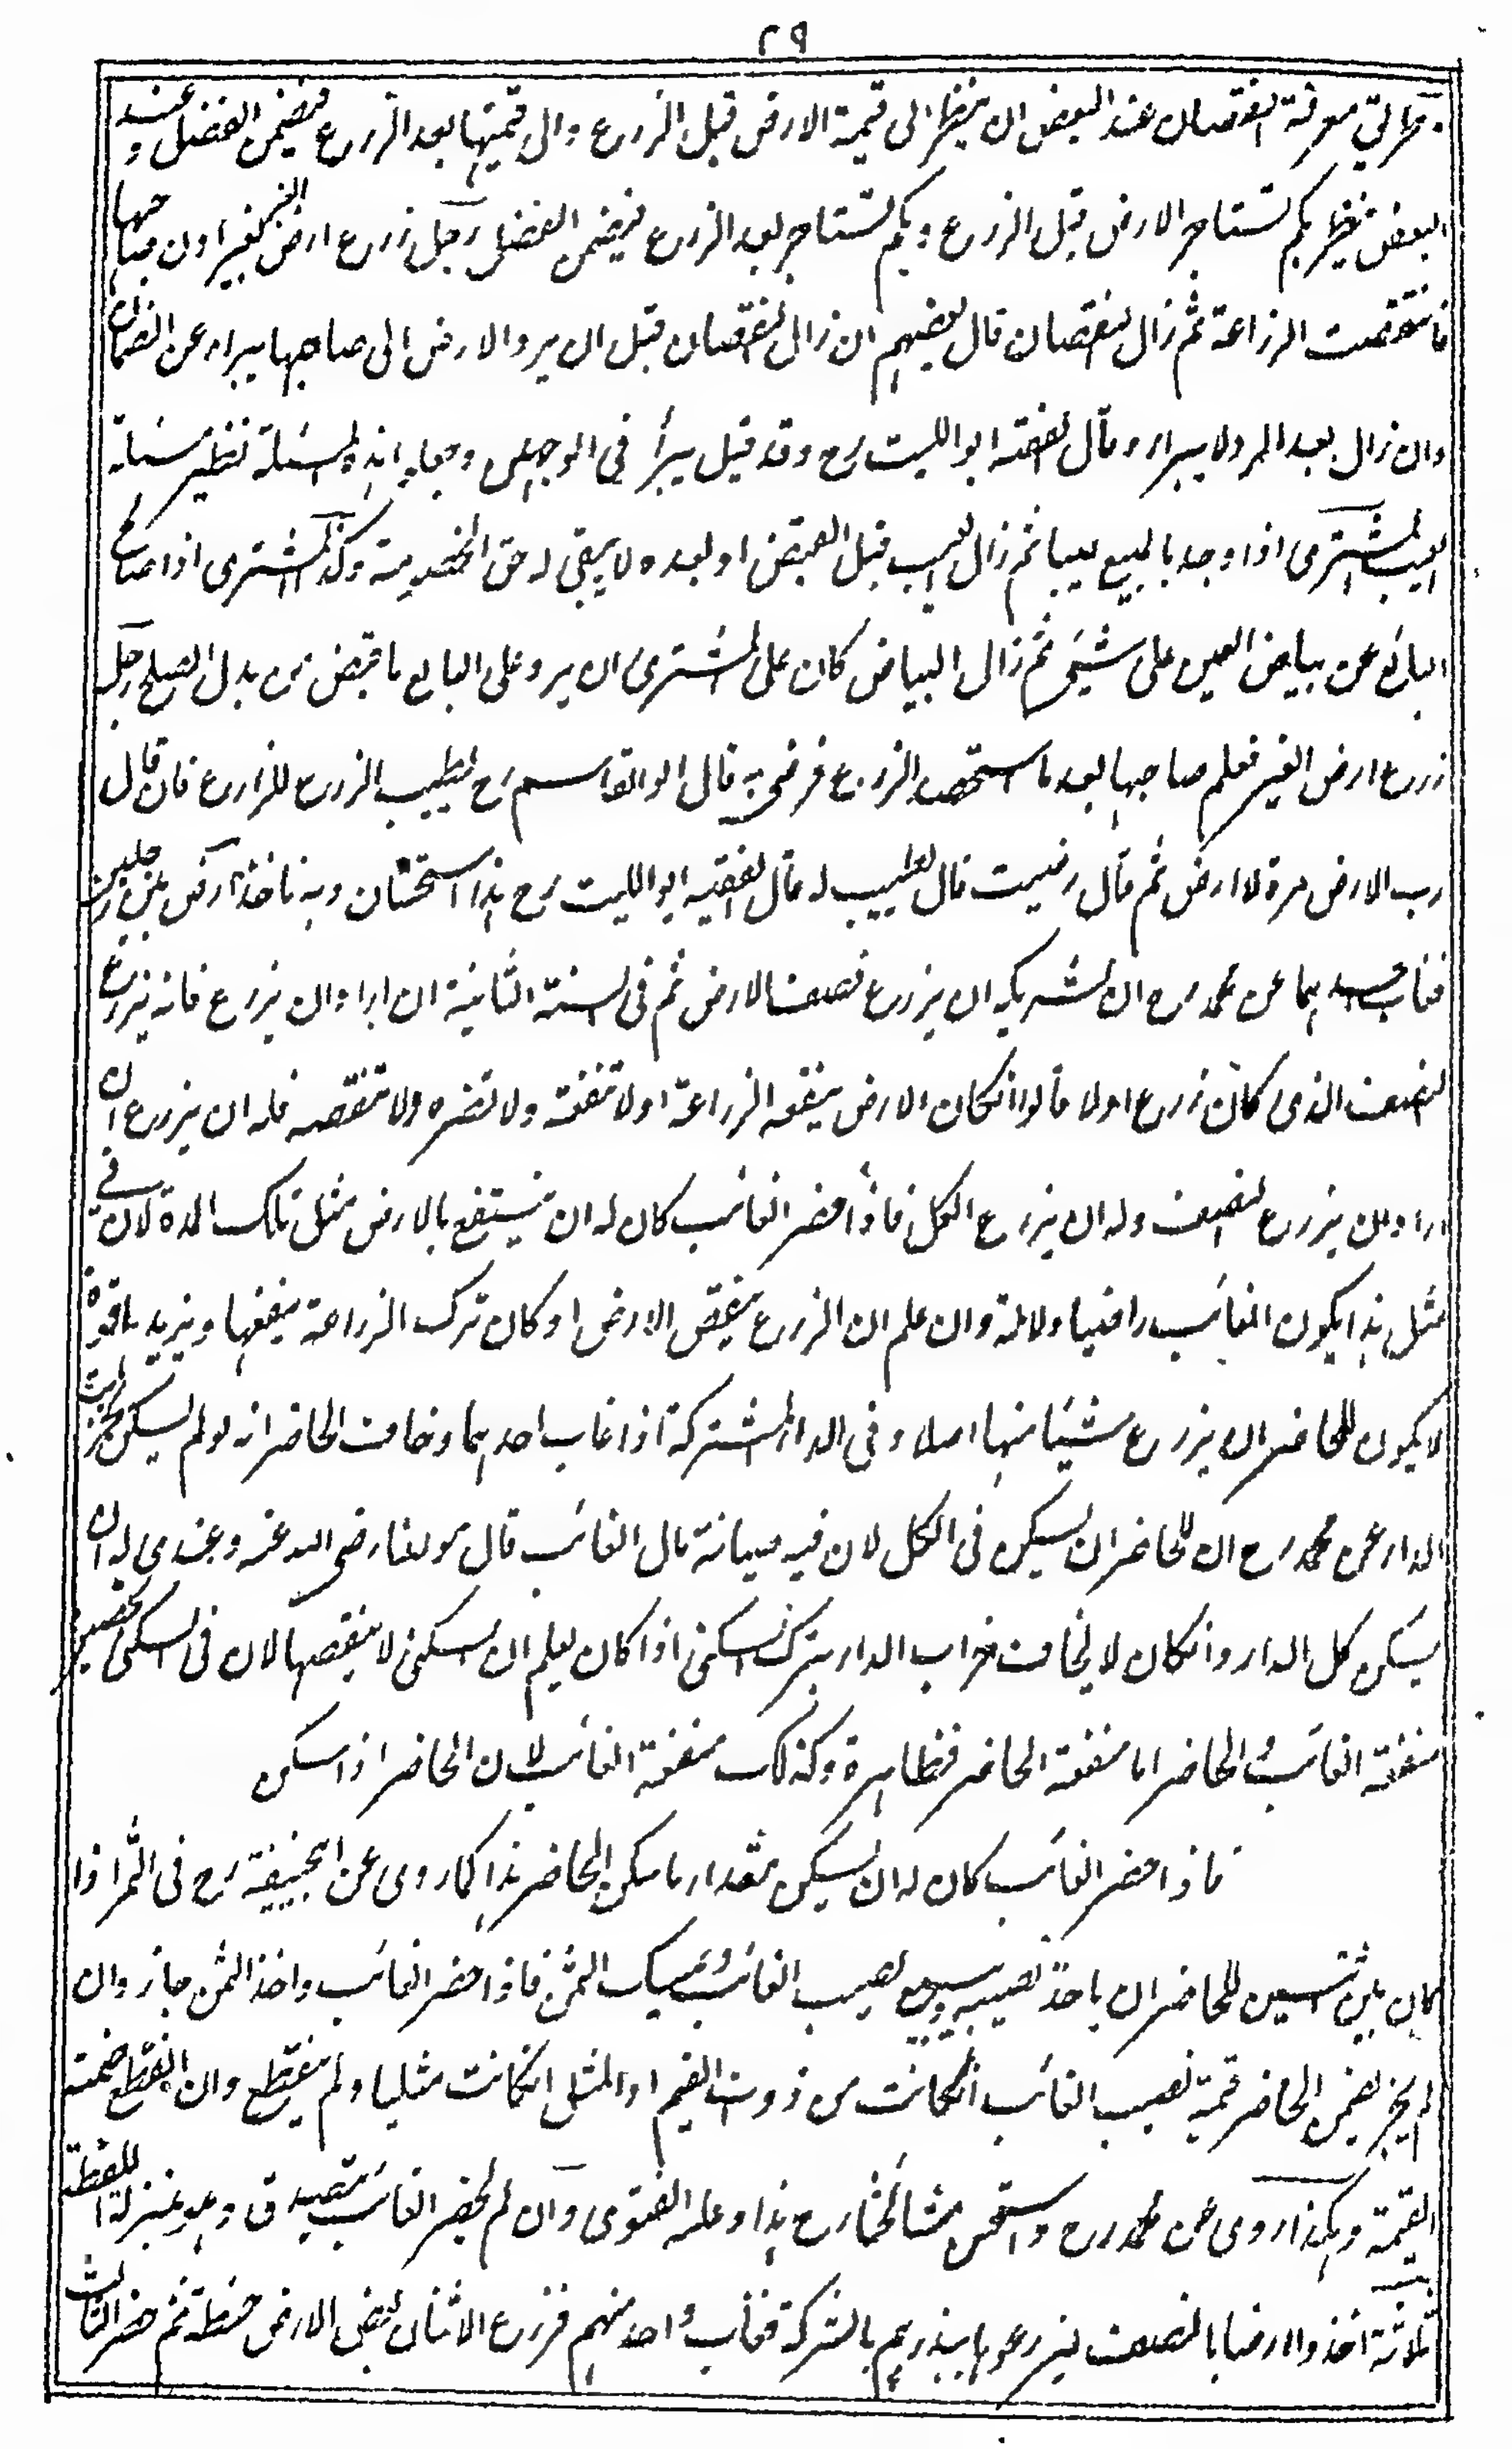 ٢٩
وطريق معرفة النقصان عند البعض ان ينظر الى قيمة الارض قبل الزرع والى قيمتها بعد الزرع فيضمن الفضل وعند
البعض ينظر بكم تستاجر الارض قبل الزرع وبكم تستاجر بعد الزرع فيضمن الفضل رجل زرع ارض الغير بغير اذن صاحبها
فانتقصت الزراعة ثم زال النقصان قال بعضهم ان زال النقصان قبل ان يرد الارض الى صاحبها يبراء عن الضمان
وان زال بعد الرد لا يبراء وقال الفقيه ابو الليث رح وقد قيل يبرأ في الوجهين وهذه المسئلة نظير مسئلة
العيب المشترى اذا وجد بالمبيع عيبا ثم زال العيب قبل القبض او بعده لا يبقى له حق الخصومة وكذا المشترى اذا صالح
البائع عن بياض العين على شيئ ثم زال البياض كان على المشترى ان يرد على البايع ما قبض من بدل الصلح رجل
زرع ارض الغير فعلم صاحبها بعد ما استحصد الزرع فرضى به قال ابو القاسم رح يطيب الزرع للزارع فان قال
رب الارض مرة لا ارض ثم قال رضيت قال يطيب له قال الفقيه ابو الليث رح هذا استحسان وبه ناخذ ارض بين رجلين
فغاب احدهما عن محمد رح ان لشريكه ان يزرع نصف الارض ثم في السنة الثانية ان اراد ان يزرع فانه يزرع
النصف الذى كان زرع اولا قالوا انكان الارض ينفعه الزراعة او لا تنفعه ولا تضره ولا تنقصه فله ان يزرع ان
اراد ان يزرع النصف وله ان يزرع الكل فاذا حضر الغائب كان له ان ينتفع بالارض مثل تلك المدة لان في
مثل هذا يكون الغائب راضيا دلالة وان علم ان الزرع ينقص الارض او كان ترك الزراعة ينفعها ويزيد ها قوة
لا يكون للحاضر ان يزرع شيئا منها اصلا وفى الدار المشتركة اذا غاب احدهما وخافت الحاضر انه لو لم يسكن تخرب
الدار عن محمد رح ان للحاضر ان يسكن فى الكل لان فيه صيانة مال الغائب قال مولانا رضى الله عنه وعندى له ان
يسكن كل الدار وانكان لا يخافت خراب الدار بترك السكنى اذا كان يعلم ان السكنى لا ينقصها لان فى السكنى تحصيل
منفعة الغائب والحاضر اما منفعة الحاضر فظاهرة وكذلك منفعة الغائب لان الحاضر اذا سكن
فاذا حضر الغائب كان له ان يسكن مقدار ما سكن الحاضر هذا كما روى عن ابيحنيفة رح فى الثمر اذا
كان بين اثنين للحاضر ان ياخذ نصيبه ويبيع نصيب الغائب ويمسك الثمن فاذا حضر الغائب واخذ الثمن جاز وان
لم يجز يضمن الحاضر قيمة نصيب الغائب انكانت من ذوات القيم او المثل انكانت مثليا ولم ينقطع وان انقطع ضمنه
القيمة وهكذا روى عن محمد رح واستحسن مشائخنا رح هذا وعليه الفتوى وان لم يحضر الغائب يتصدق وهو بمنزلة اللقطة
ثلاثة اخذوا ارضا بالنصف ليزرعوها ببذرهم بالشركة فغاب واحد منهم فزرع الاثنان بعض الارض حنطة ثم حضر الثالث